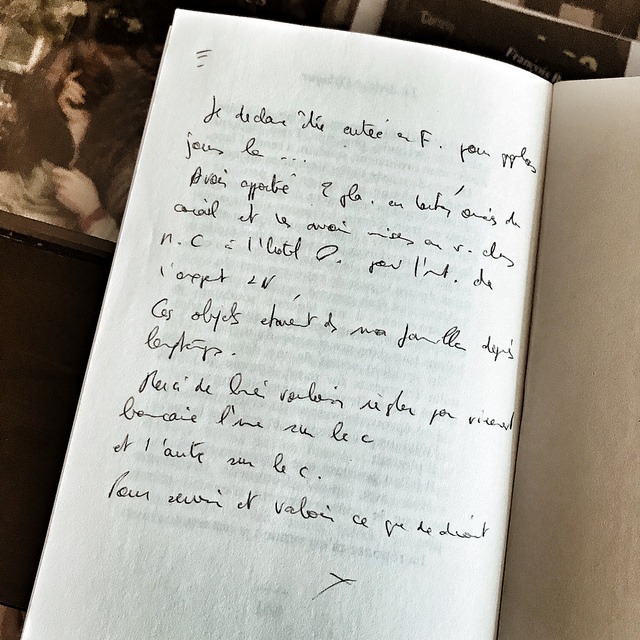 Je déclare être entrée en F. pour qqles
jours le ...
Avoir apporté 2 pla. en laiton ornés de
corail et les avoir mises en v. chez
N. C à l'hotel D. par l'int. de
l'expert
Ces objets étaient ds ma famille depuis
longtemps.
Merci de bien vouloir régler par virement
bancaire l'une sur le c
et l'autre sur le c.
Pour servir et valoir ce que de droit